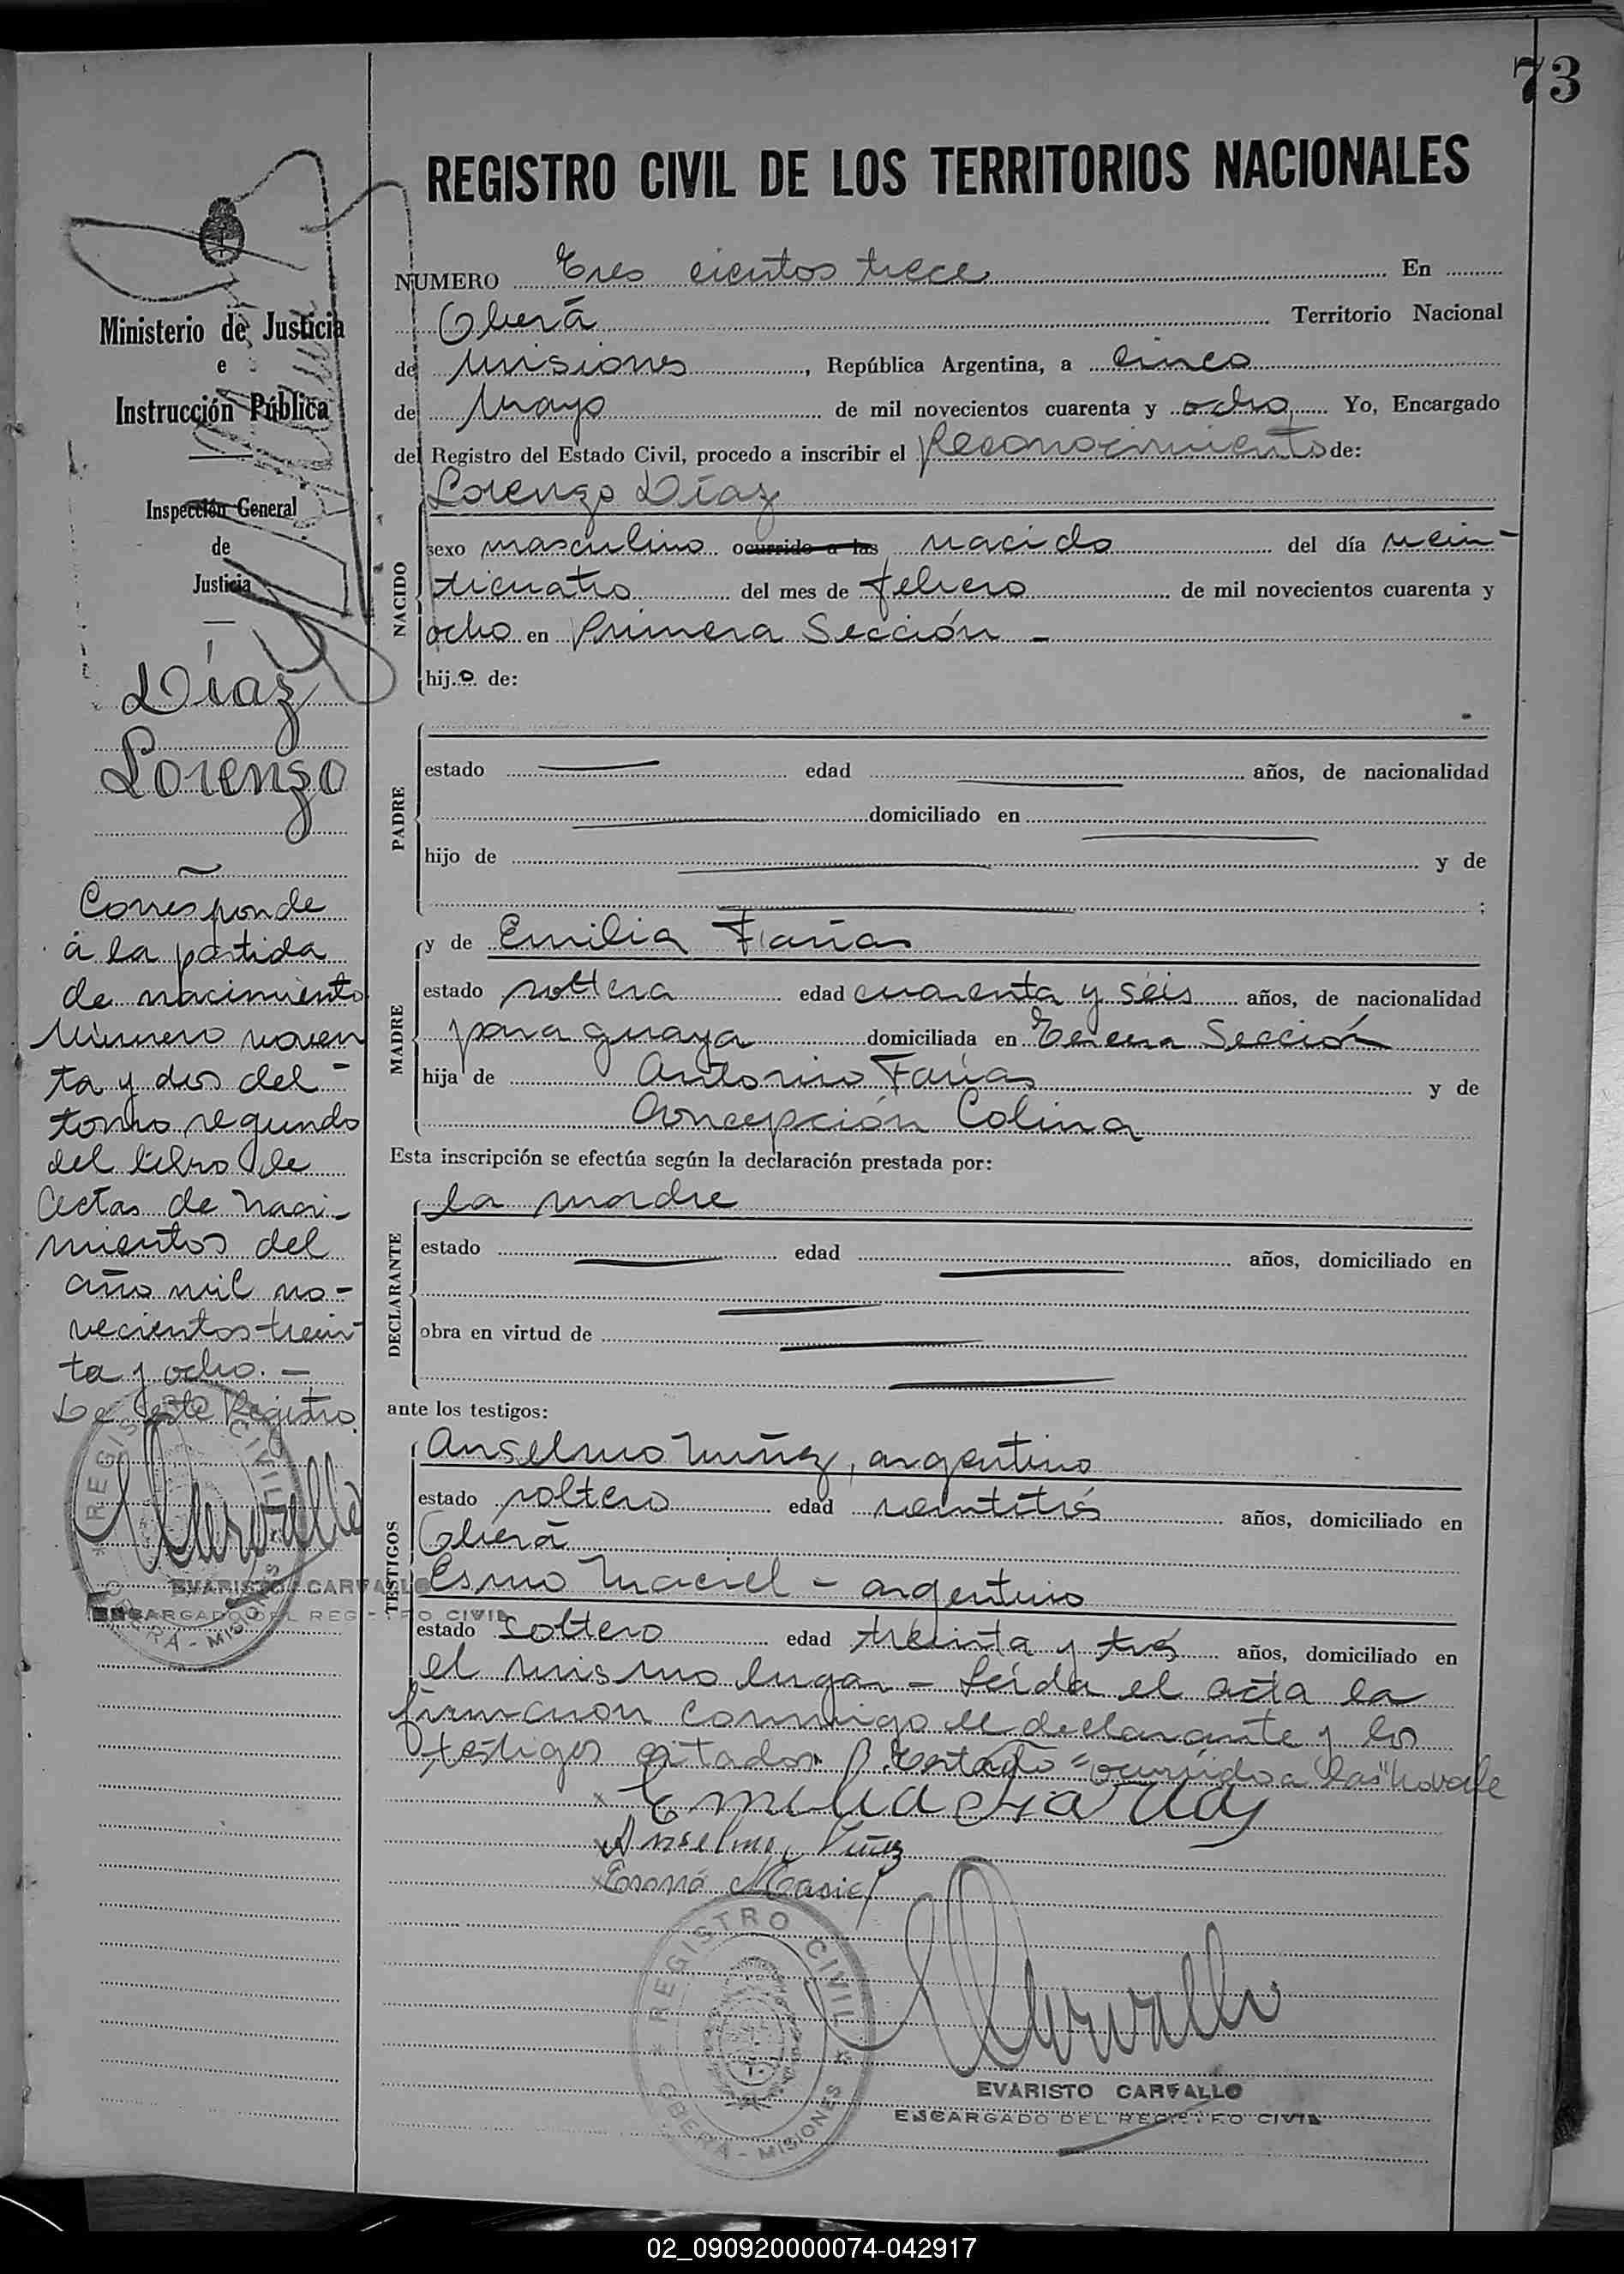 73
REGISTRO CIVIL DE LOS TERRITORIOS NACIONALES
Ministerio de Justicia
e
Instrucción Pública
Inspección General
de
Justicia
Díaz
Lorenzo
Corresponde
á la partida
de nacimiento
Número noven
ta y dos del
tomo segundo
del libro de
Actas de Naci-
mientos del
año mil no-
vecientos trein
ta y ocho. -
De este Registro
REGISTRO CIVIL
OBERÁ - MISIONES
EVARISTO CARVALLO
ENCARGADO DEL REGISTRO CIVIL
NUMERO Tres cientos trece En
Oberá Territorio Nacional
de Misiones, República Argentina, a cinco
de Mayo de mil novecientos cuarenta y ocho, Yo, Encargado
del Registro del Estado Civil, procedo a inscribir el Reconocimiento de:
NACIDO
Lorenzo Díaz
sexo masculino ocurrido a las nacido del día vein-
ticuatro del mes de febrero de mil novecientos cuarenta y
ocho en Primera Sección -
hijo de:
PADRE
estado edad años, de nacionalidad
domiciliado en
hijo de y de
;
MADRE
y de Emilia Farías
estado soltera edad cuarenta y séis años, de nacionalidad
paraguaya domiciliada en Tercera Sección
hija de Antonino Farías y de
Concepción Colina
Esta inscripción se efectúa según la declaración prestada por:
DECLARANTE
la madre
estado edad años, domiciliado en
obra en virtud de
ante los testigos:
TESTIGOS
Anselmo Nuñez, argentino
estado soltero edad veintitrés años, domiciliado en
Oberá
Esmo Maciel - argentino
estado Soltero edad treinta y trés años, domiciliado en
el mismo lugar - Leída el acta la
firmaron conmigo el declarante y los
testigos citados. Testado "ocurrido a las" No vale
Emilia Farias
Anselmo Nuñez
Maciel
REGISTRO CIVIL
OBERÁ - MISIONES
Carvallo
EVARISTO CARVALLO
ENCARGADO DEL REGISTRO CIVIL
02_090920000074-042917